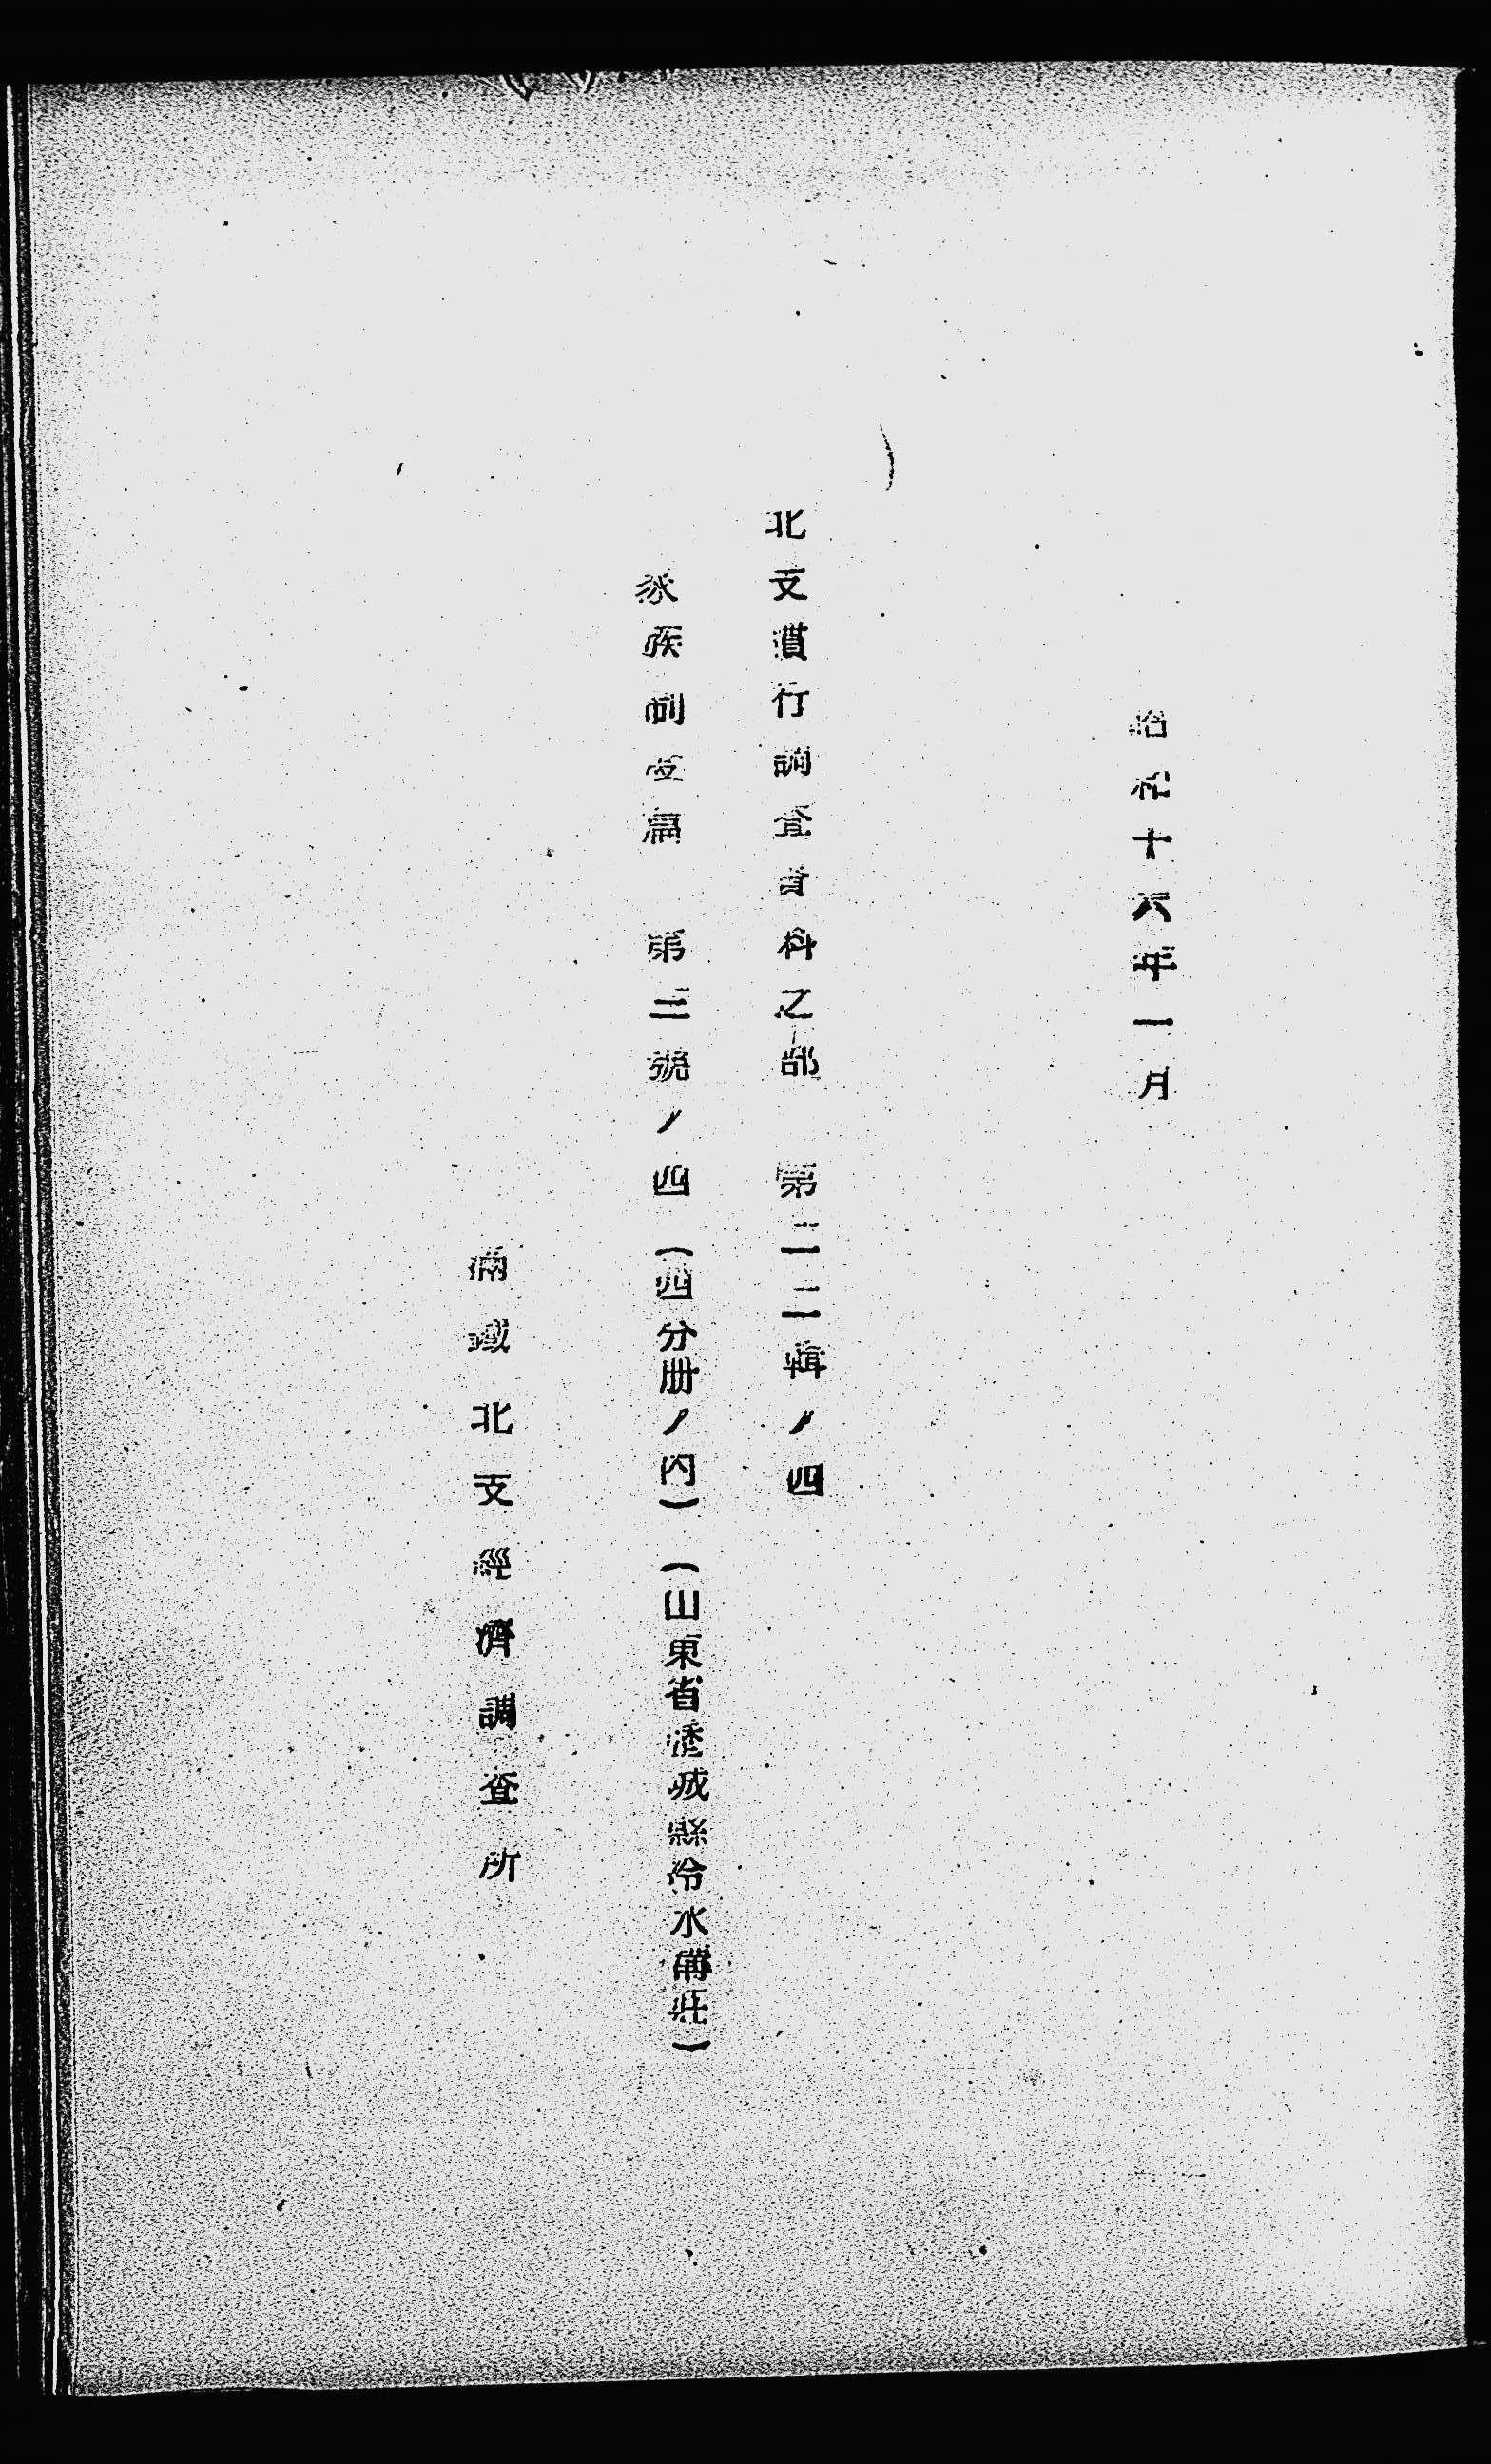 昭和十六年一月
北支慣行調査資料之部　第二二輯ノ四
家族制度篇　第三號ノ四（四分册ノ内）（山東省歷城縣冷水溝莊）
滿鐵北支經濟調査所